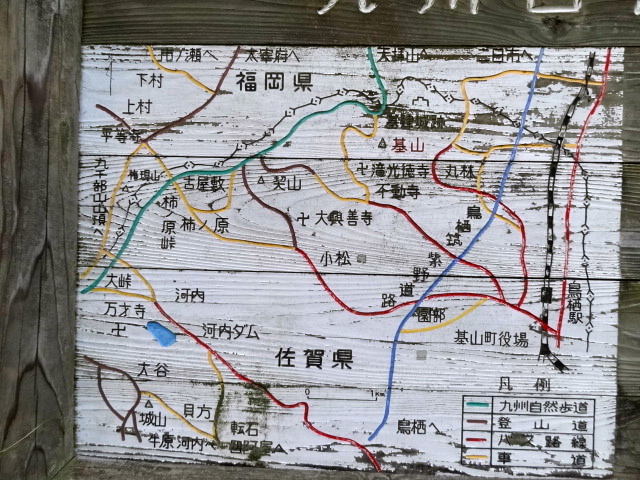 市ノ瀬へ
太宰府へ
天拝山へ
二日市へ
下村
福岡県
上村
平等寺
基山
権現山
古屋敷
契山
卍滝光徳寺
不動寺
丸林
九千部山山頂へ
柿ノ原峠
柿ノ原
卍大興善寺
鳥栖筑紫野道路
小松
大峠
河内
園部
鳥栖駅
万才寺
卍
河内ダム
基山町役場
佐賀県
大谷
凡例
0
1km
城山
貝方
転石
鳥栖へ
九州自然歩道
登山道
バス路線
車道
平原
河内へ